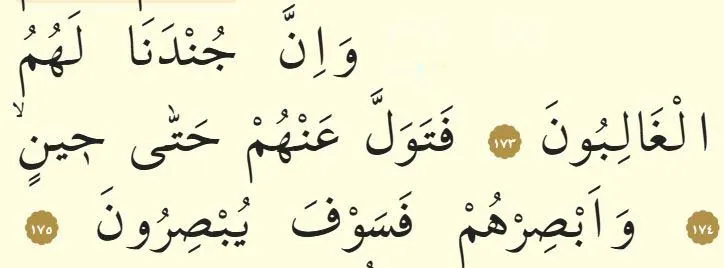 وَاِنَّ جُنْدَنَا لَهُمُ
الْغَالِبُونَ ١٧٣ فَتَوَلَّ عَنْهُمْ حَتّٰى ح۪ينٍۙ
١٧٤ وَاَبْصِرْهُمْ فَسَوْفَ يُبْصِرُونَ ١٧٥